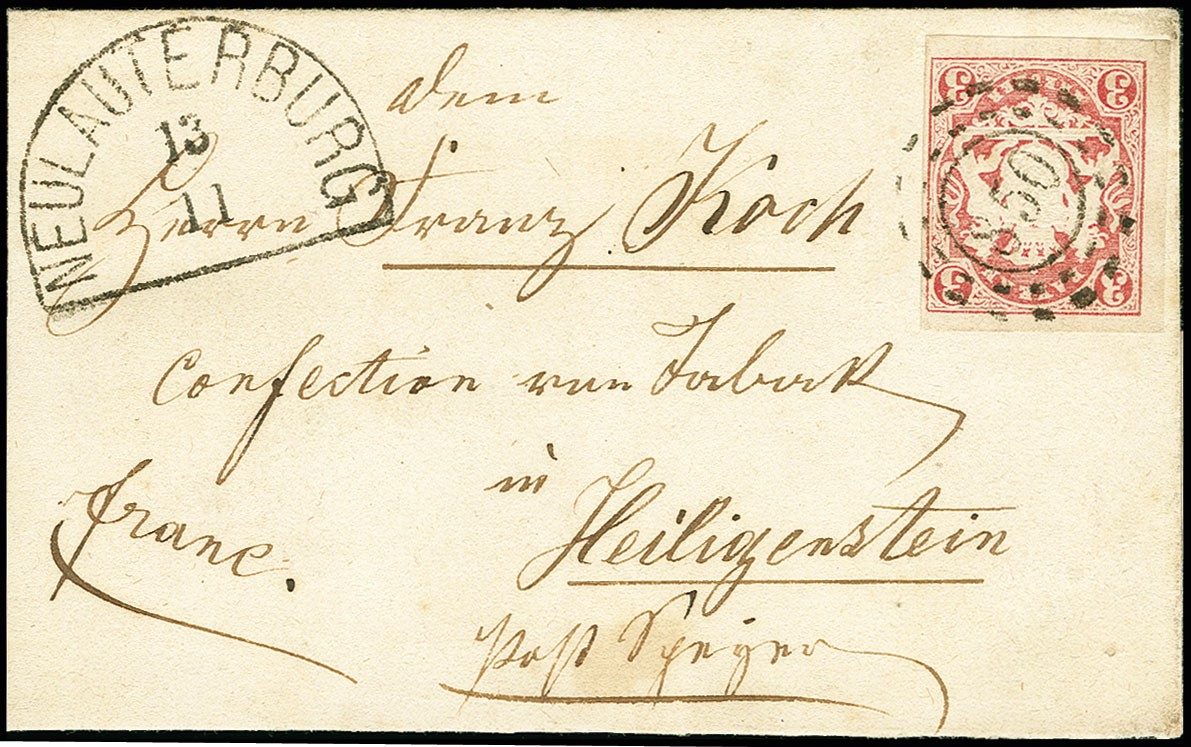 NEULAUTERBURG
13
11
dem
Herrn Franz Koch
Confection van Taback
in
Heiligenstein
Post Speyer
franc.
3 3
850
3 3